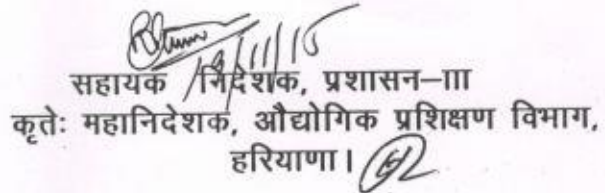 सहायक निदेशक, प्रशासन–III
कृतेः महानिदेशक, औद्योगिक प्रशिक्षण विभाग,
हरियाणा।